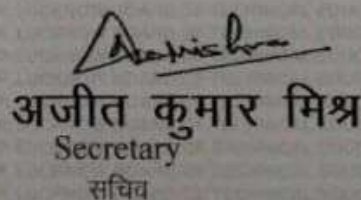 अजीत कुमार मिश्र
Secretary
सचिव